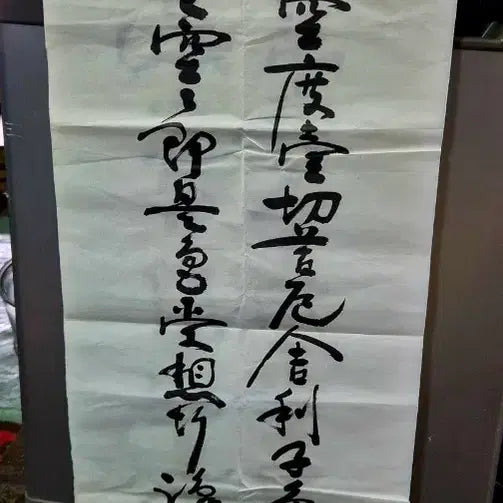 空度壹切苦厄舍利子色
空〻即是色受想行識